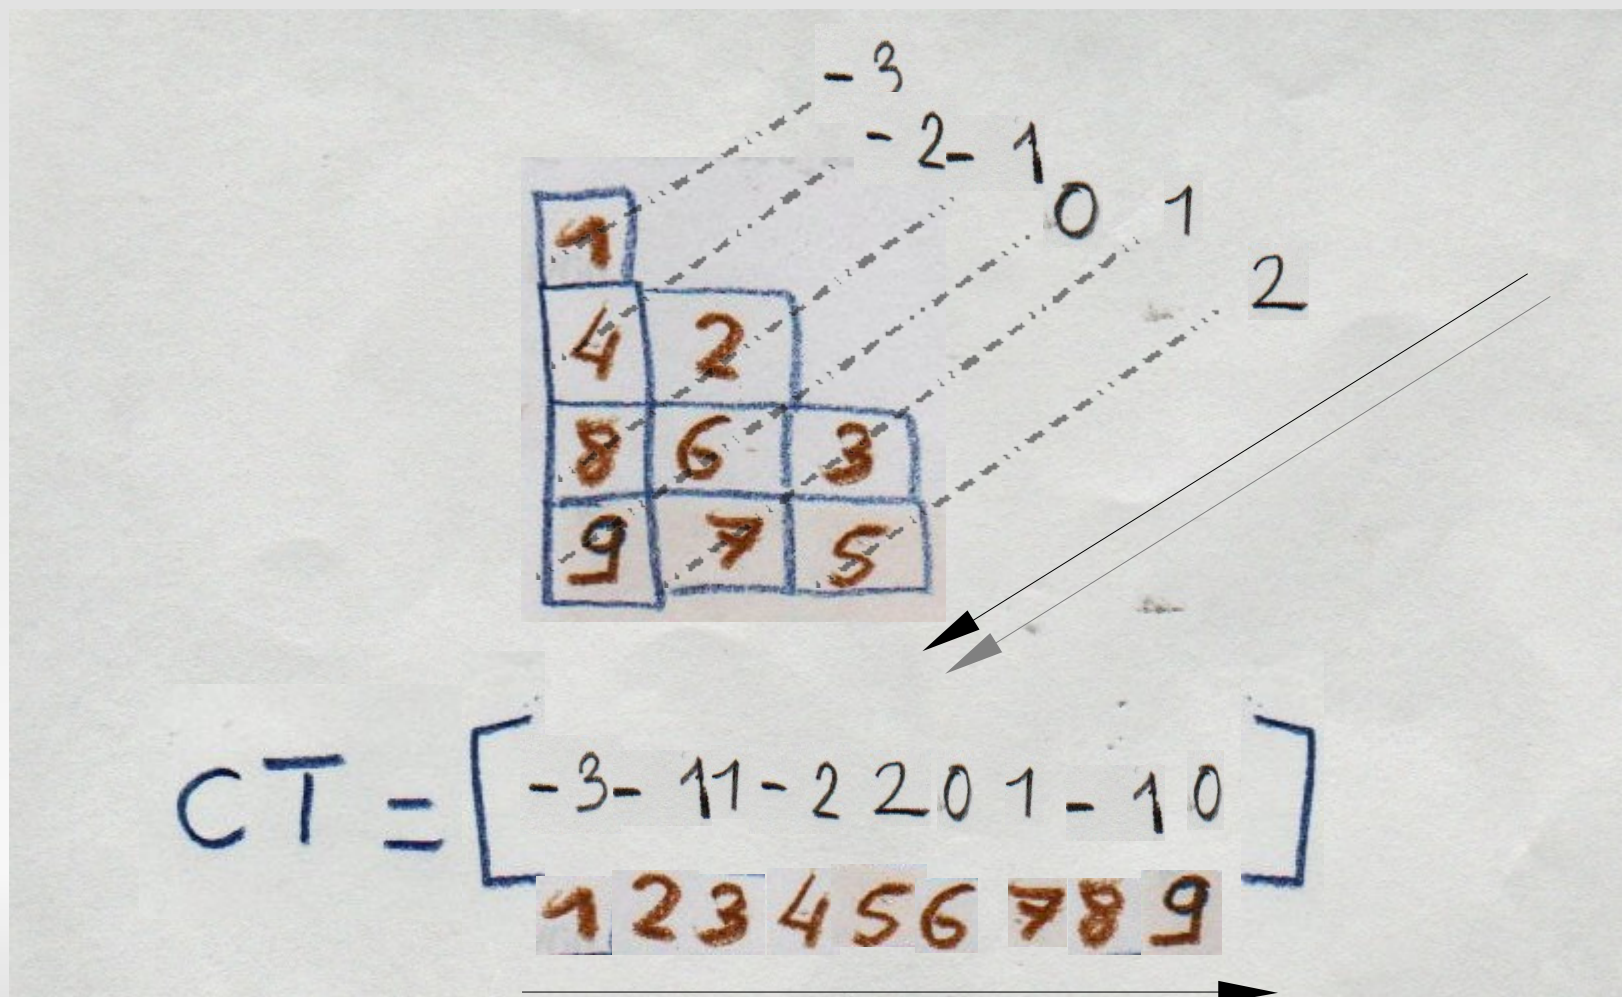 - 3
- 2 - 1
0 1
2
1
4 2
8 6 3
9 7 5
CT = [ - 3 - 1 1 - 2 2 0 1 - 1 0 ]
1 2 3 4 5 6 7 8 9